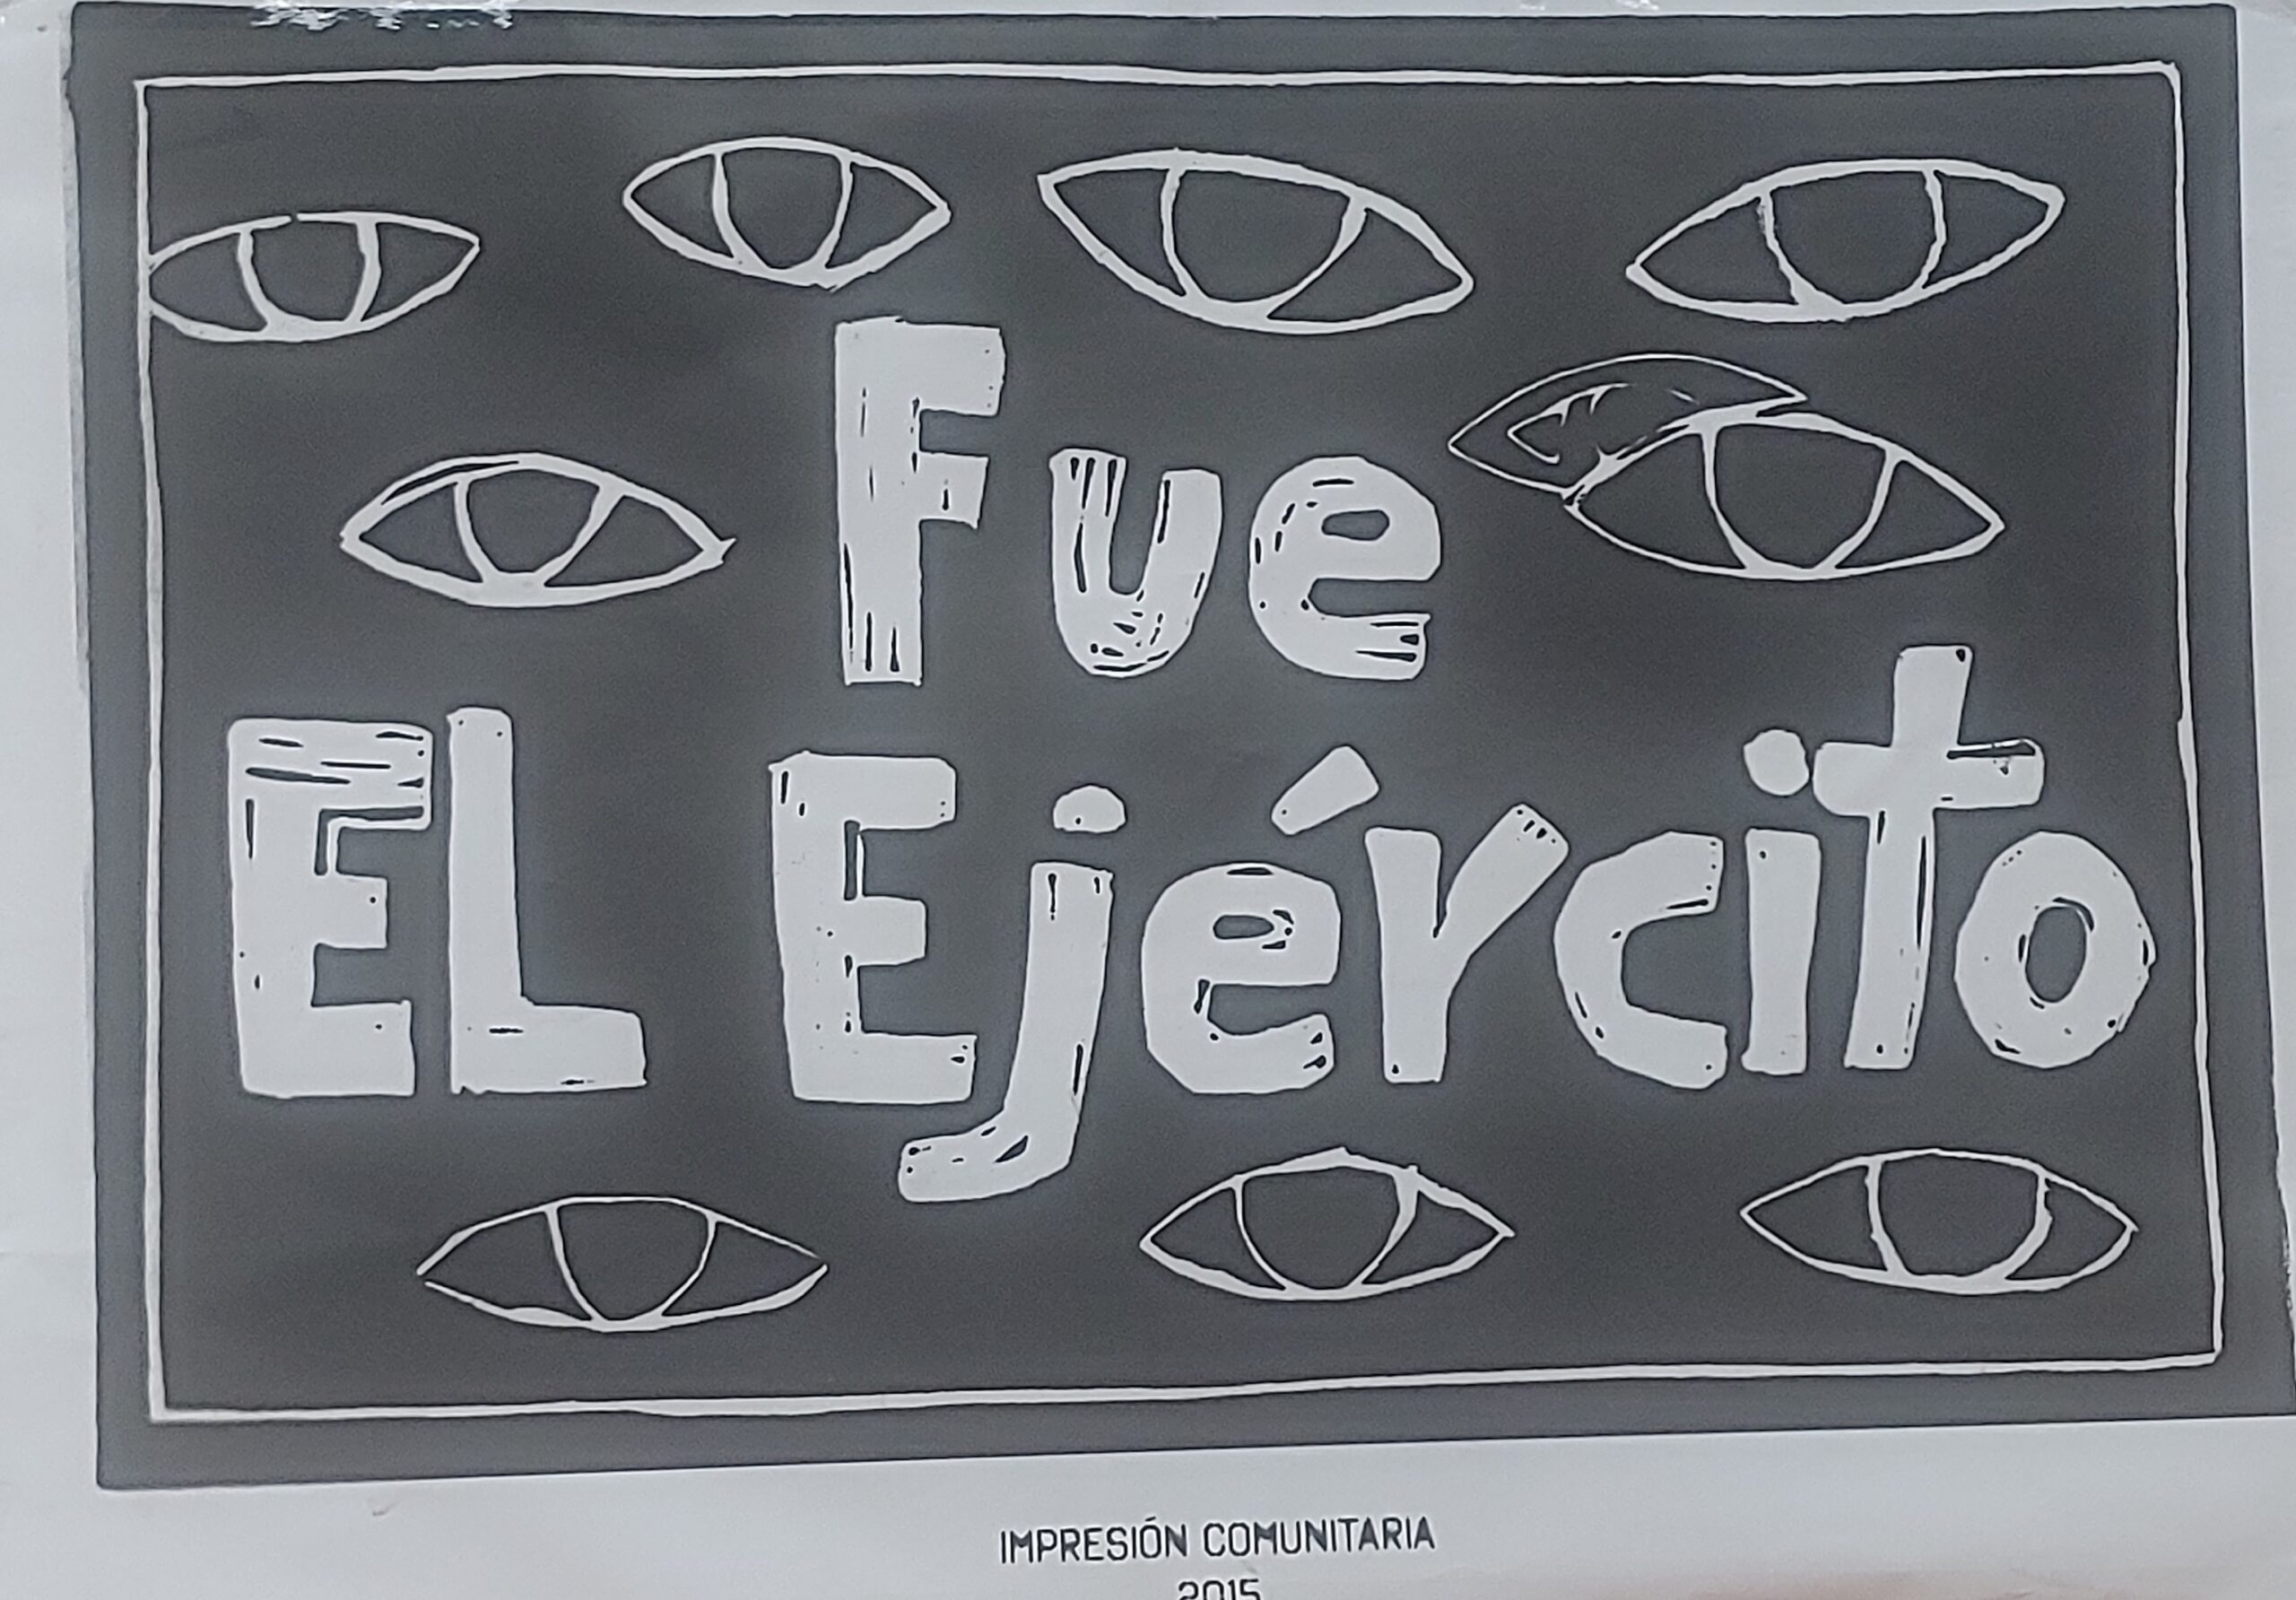 Fue
EL Ejército
IMPRESIÓN COMUNITARIA
2015